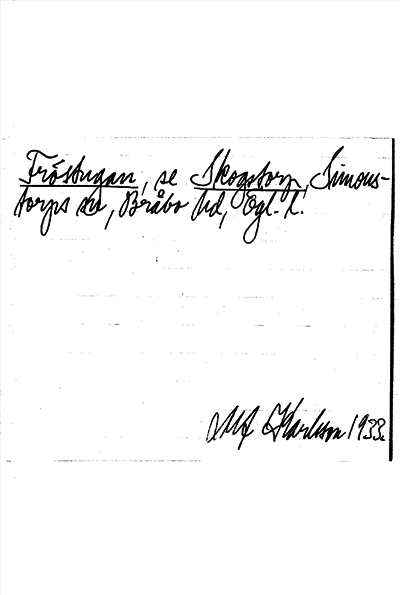 Fröstugan, se Skogstorp, Simons-
torps sn, Bråbo hd, Ögl. l.
Karlsson 1933.